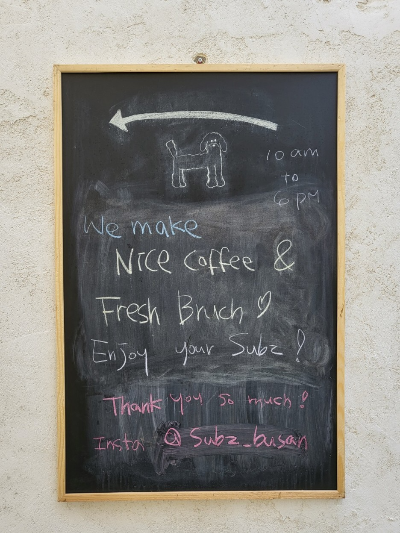 10 am
to
6 pm
We make
Nice Coffee &
Fresh Bruch
Enjoy your Subz !
Thank you so much !
Insta @ Subz_busan